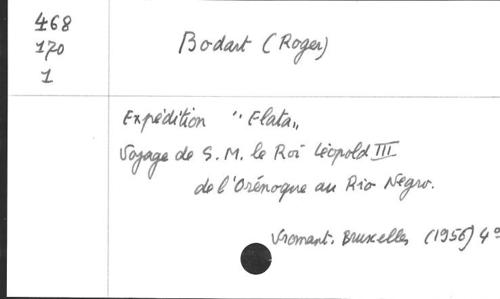 468
170
1
Bodart (Roger)
Expédition " Elata„
Voyage de S. M. le Roi Léopold III
de l'Orénoque au Rio Negro.
Vromant. Bruxelles (1956) 4º